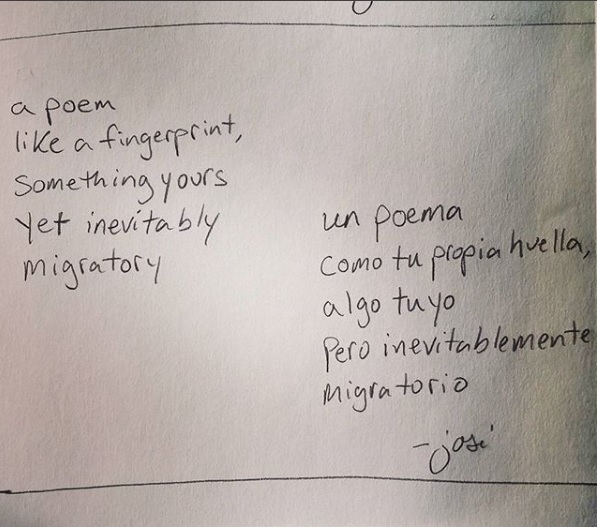 a poem
like a fingerprint,
something yours
yet inevitably
migratory
un poema
como tu propia huella,
algo tuyo
pero inevitablemente
migratorio
-josé